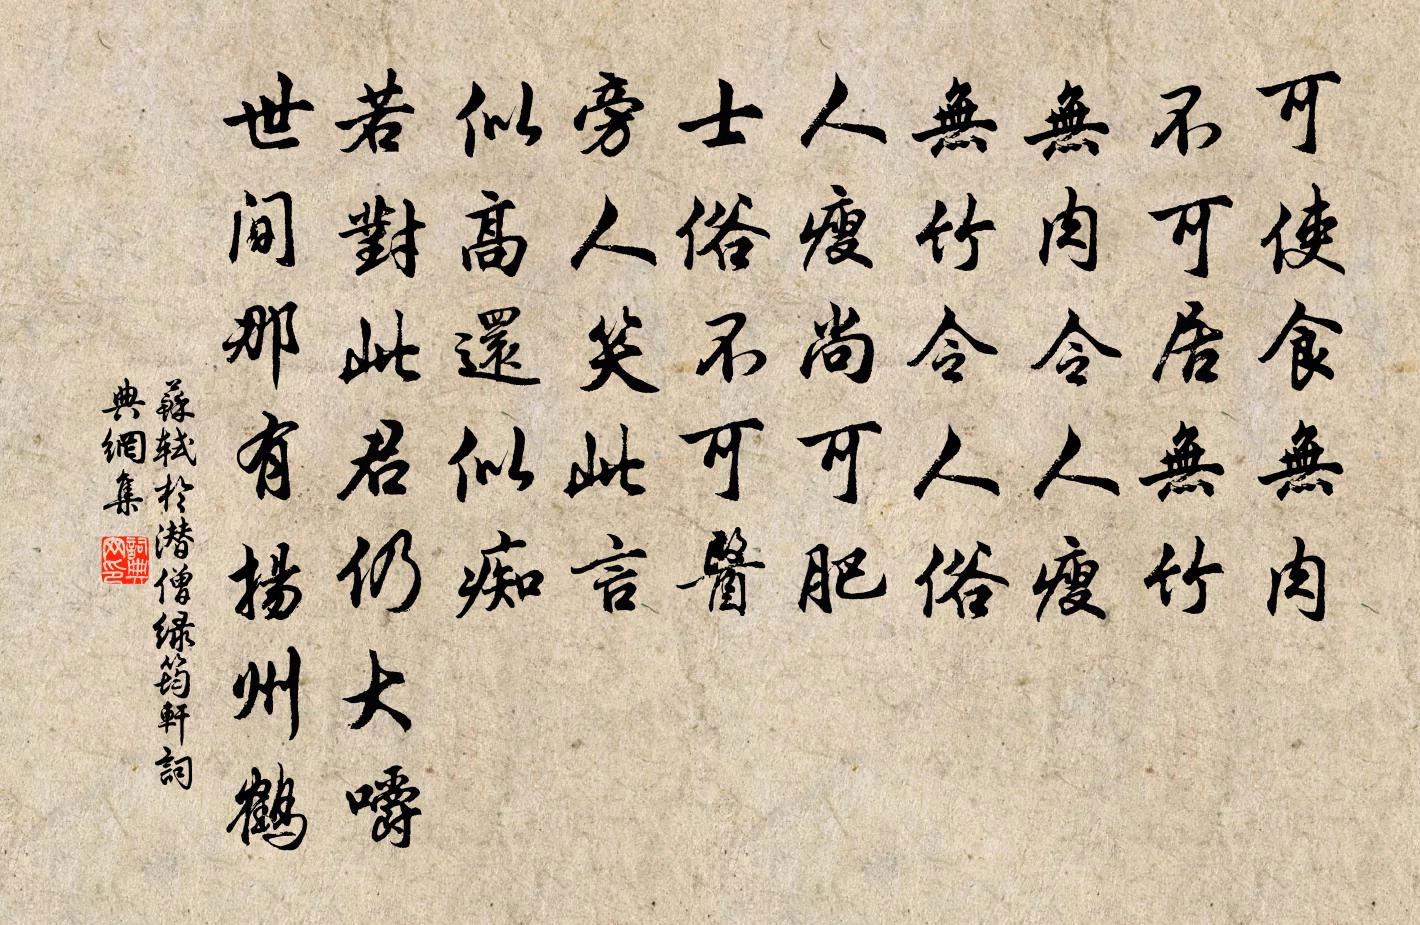 可使食無肉
不可居無竹
無肉令人瘦
無竹令人俗
人瘦尚可肥
士俗不可醫
旁人笑此言
似高還似痴
若對此君仍大嚼
世间那有揚州鶴
蘇軾於潜僧绿筠軒詞
典網集
詞典
网印